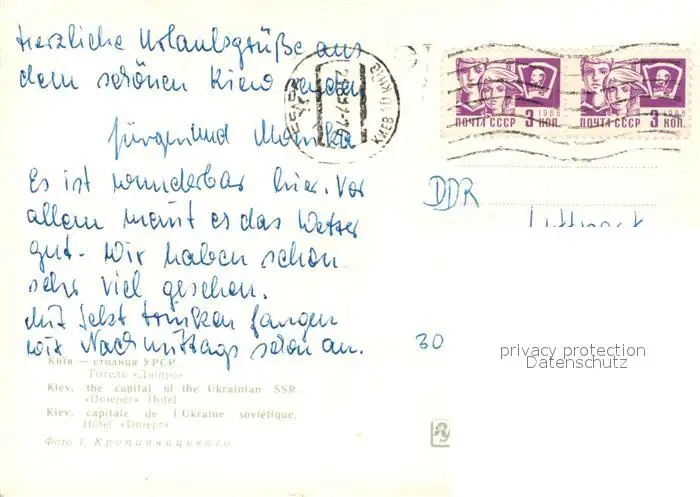 Herzliche Urlaubsgrüße aus
dem schönen Kiew senden
Jürgen und Monika
Es ist wunderbar hier. Vor
allem meint es das Wetter
gut. Wir haben schon
sehr viel gesehen.
Mit Sekt trinken fangen
wir Nachmittags schon an.
ПОЧТА СССР 1966 3 КОП.
ПОЧТА СССР 1966 3 КОП.
КИЕВ
DDR
30
privacy protection
Datenschutz
Київ — столиця УРСР
Готель «Дніпро»
Kiev, the capital of the Ukrainian SSR.
«Dnieper» Hotel
Kiev, capitale de l'Ukraine soviétique.
Hôtel «Dniepr»
Фото І. Кропивницького.